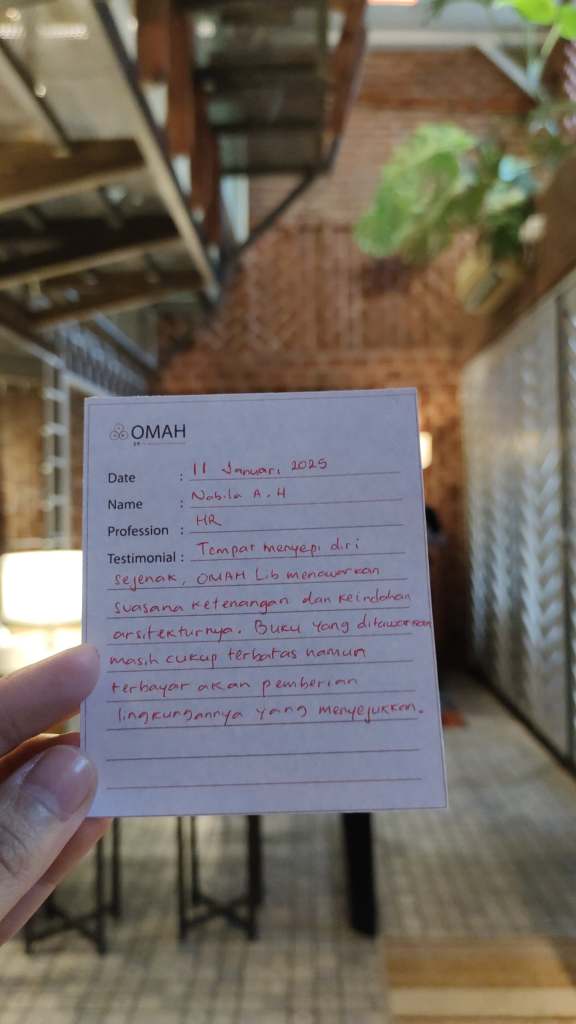 OMAH
Date : 11 Januari 2025
Name : Nabila A. H
Profession : HR
Testimonial : Tempat menyepi diri
sejenak, OMAH Lib menawarkan
suasana ketenangan dan keindahan
arsitekturnya. Buku yang ditawarkan
masih cukup terbatas namun
terbayar akan pemberian
lingkungannya yang menyejukkan.